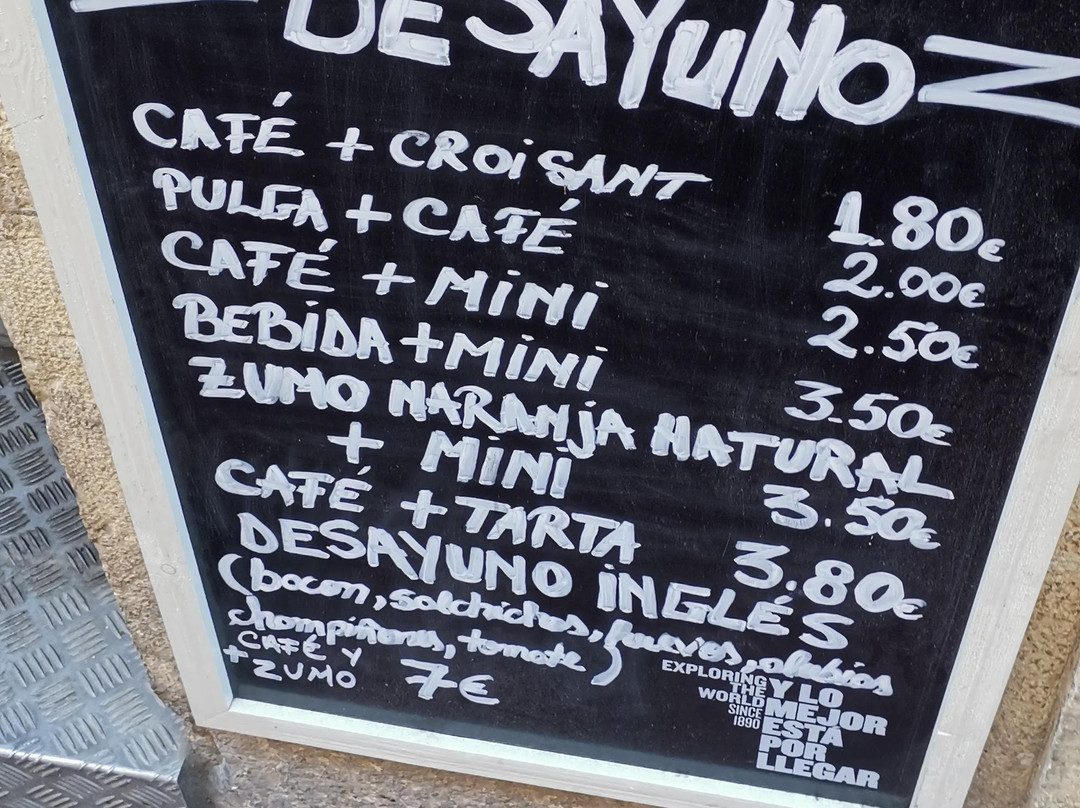 DESAYUNO
CAFÉ + CROiSANT 1.80€
PULGA + CAFÉ 2.00€
CAFÉ + MiNi 2.50€
BEBiDA + MiNi 3.50€
ZUMO NARANjA NATURAL
+ MiNi 3.50€
CAFÉ + TARTA 3.80€
DESAYUNO iNGLÉS
(bacon, salchichas, huevos, alubias
champiñones, tomate
CAFÉ Y
+ ZUMO 7€
EXPLORING
THE
WORLD
SINCE
1890
Y LO
MEJOR
ESTÁ
POR
LLEGAR